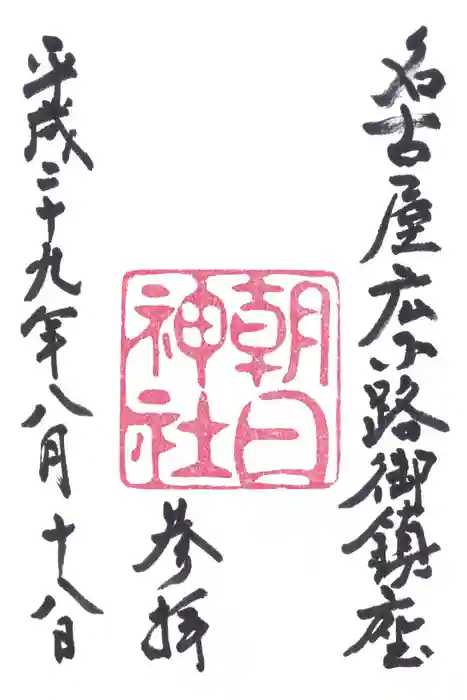 名古屋広小路御鎮座
朝日
神社
参拝
平成二十九年八月十八日